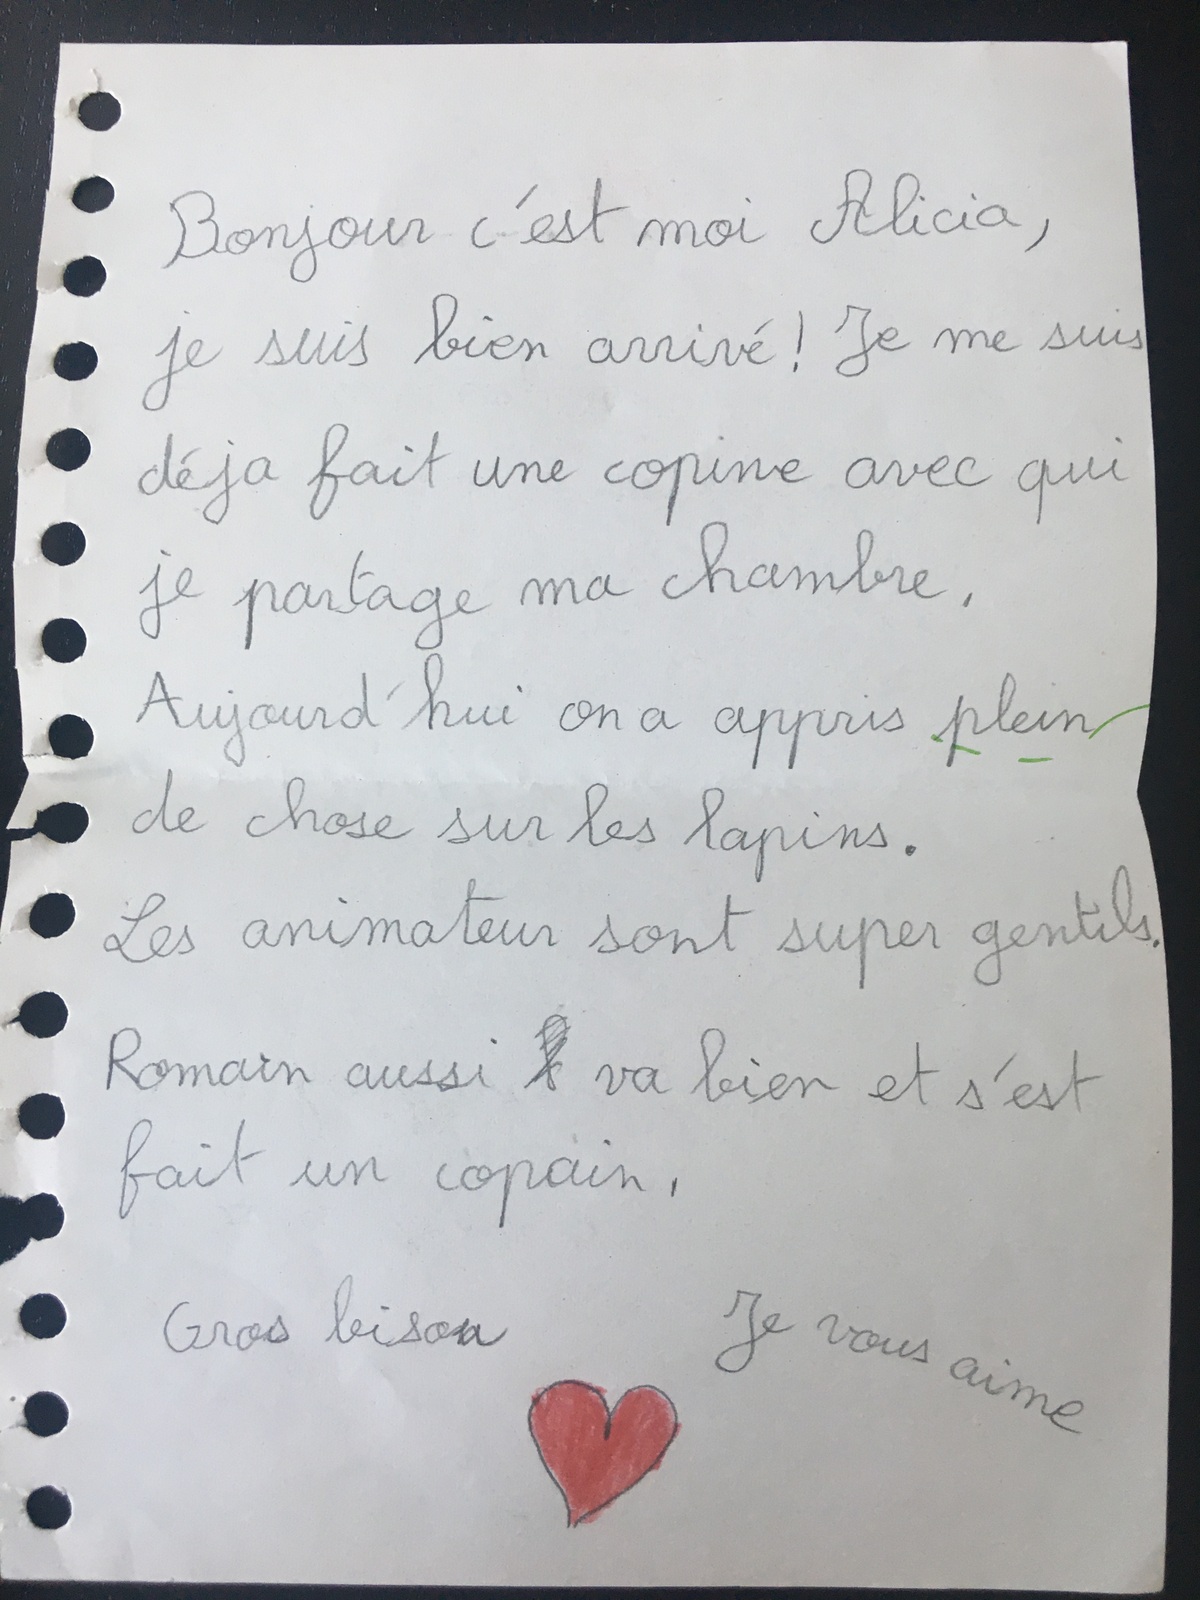 Bonjour c'est moi Alicia,
je suis bien arrivé! Je me suis
déja fait une copine avec qui
je partage ma chambre.
Aujourd'hui on a appris plein
de chose sur les lapins.
Les animateur sont super gentils.
Romain aussi va bien et s'est
fait un copain.
Gros bisou
Je vous aime